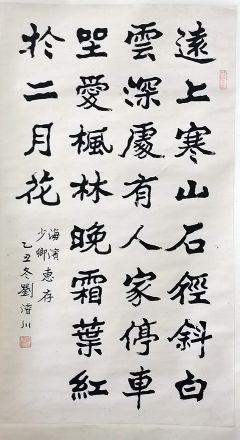 遠上寒山石徑斜白
雲深處有人家停車
坐愛楓林晚霜葉紅
於二月花
海濱
少卿
惠存
乙丑冬劉川